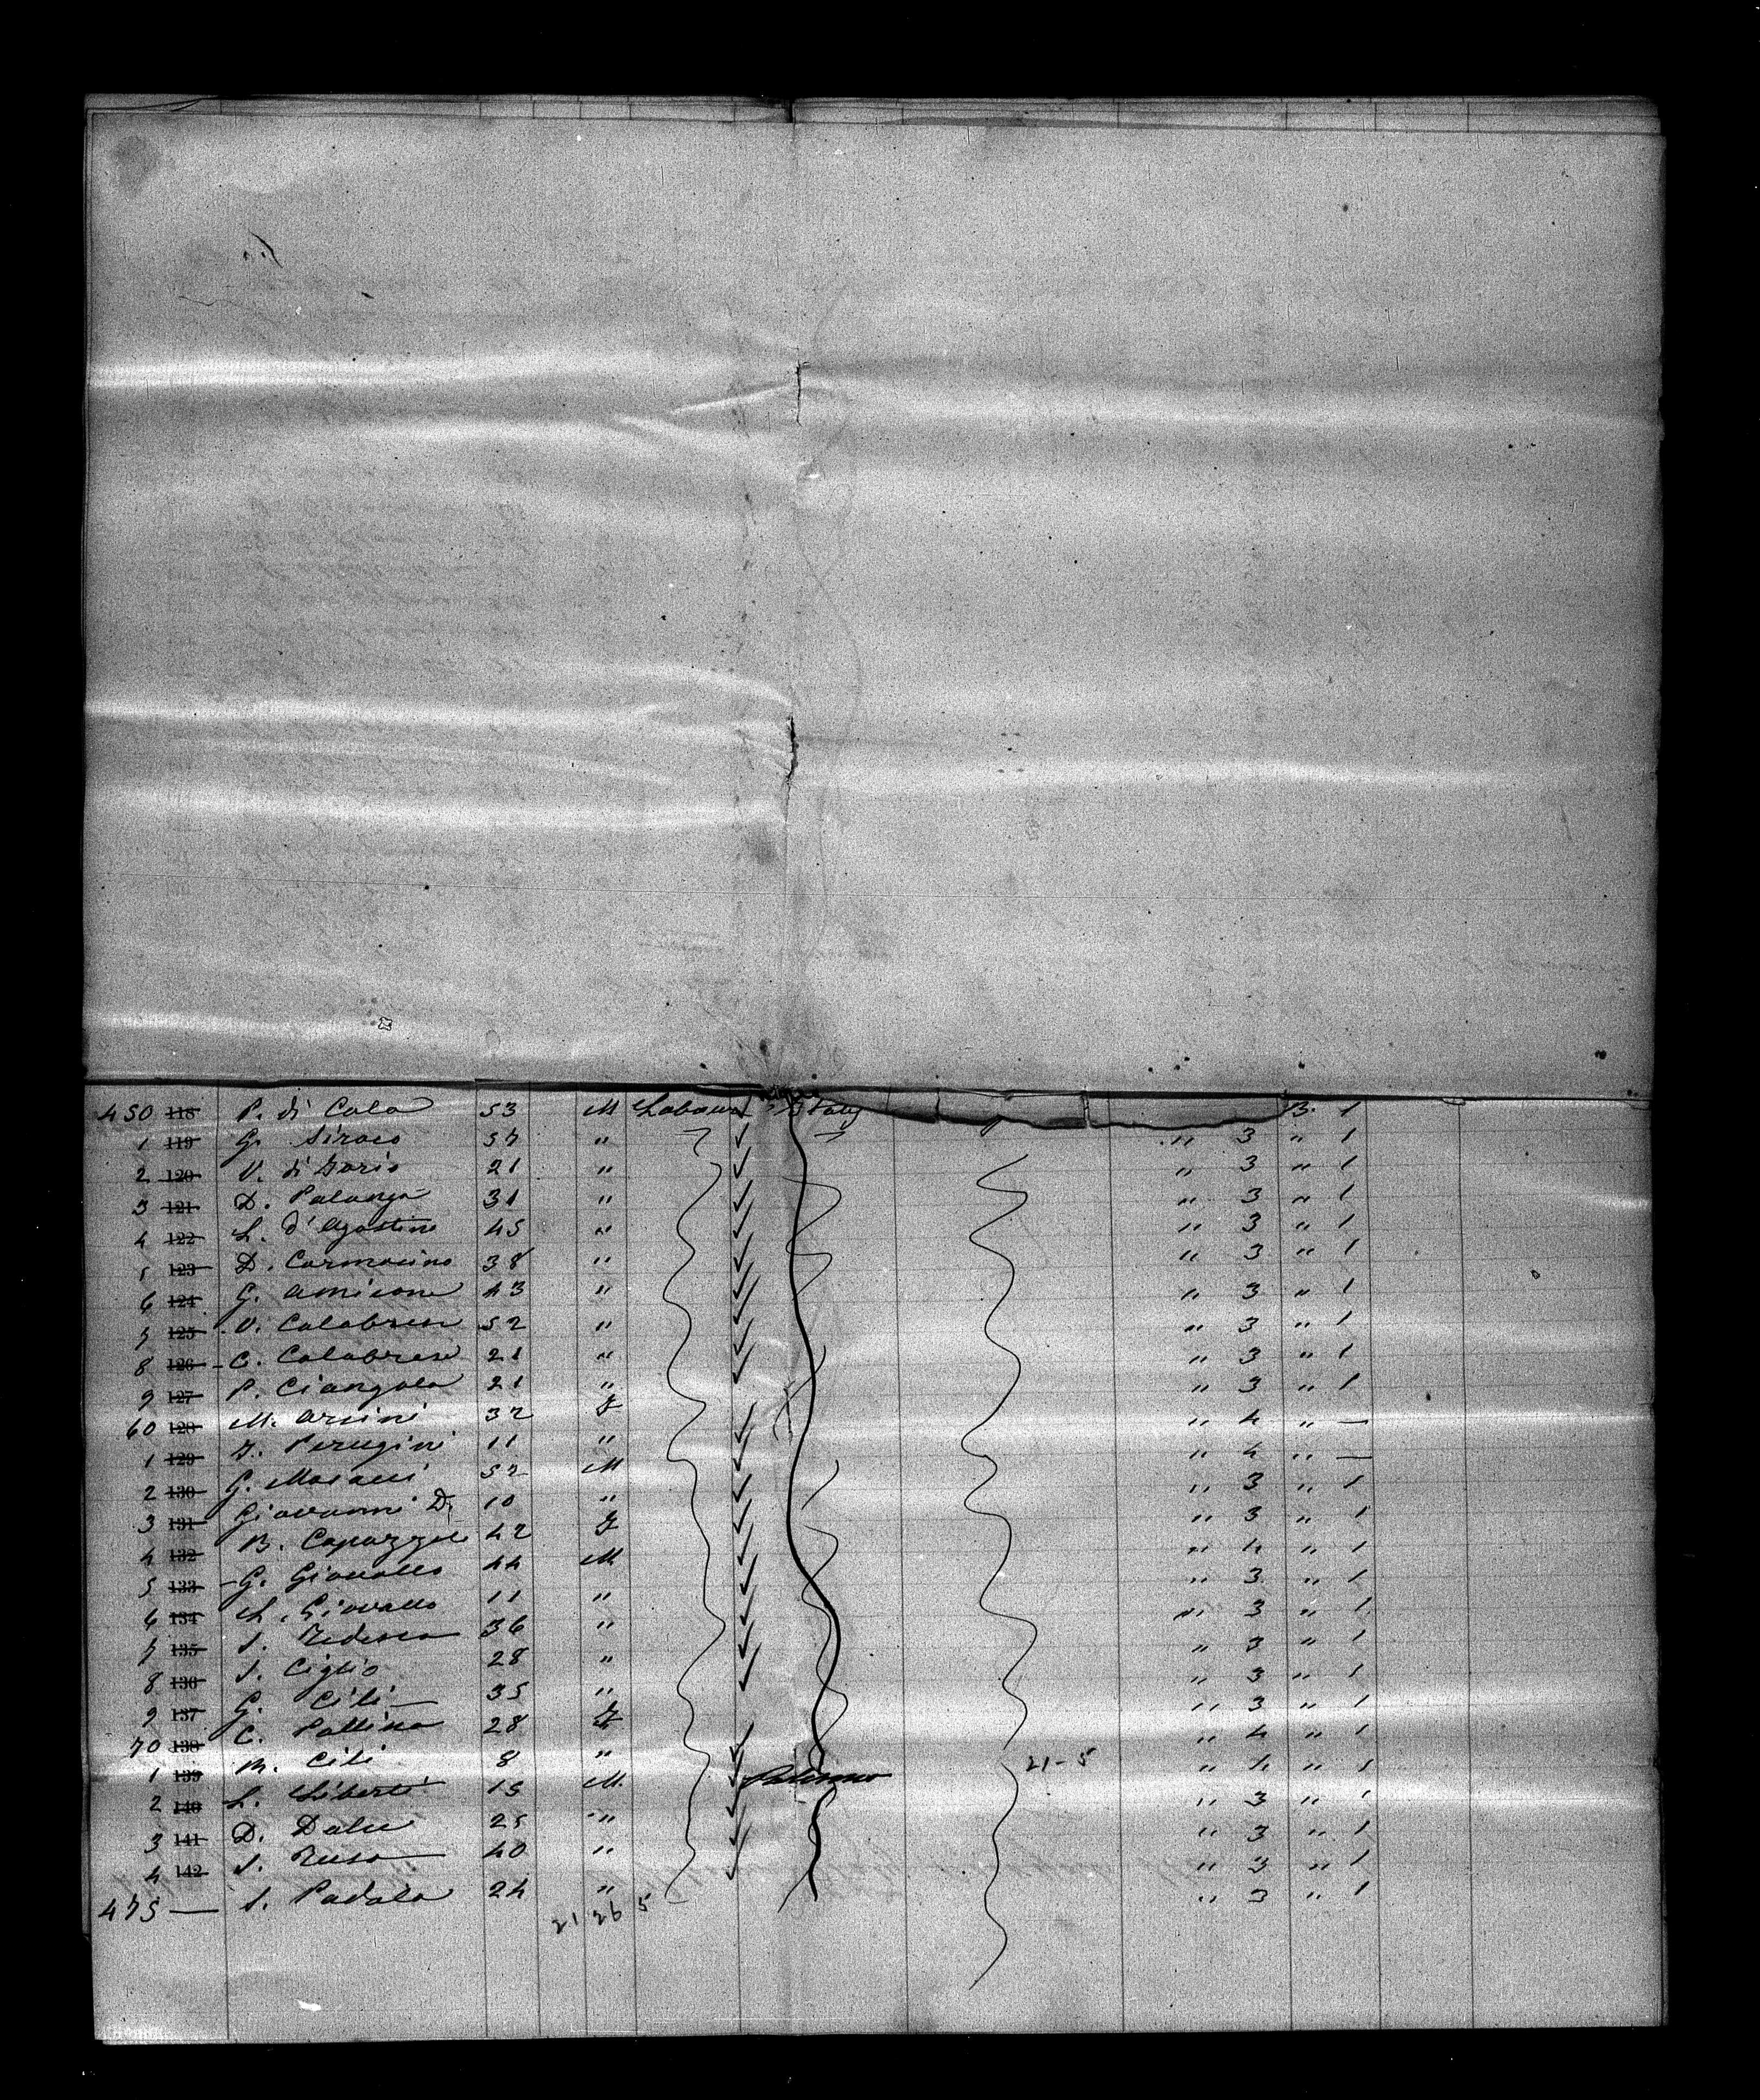 450 118 P. di Cola 53 M Labourer Italy 3. 1
1 119 G. Siroco 57 " " 3 " 1
2 120 V. di Iorio 21 " " 3 " 1
3 121 D. Palanga 31 " " 3 " 1
4 122 L. d'Agostino 45 " " 3 " 1
5 123 D. Carmosino 38 " " 3 " 1
6 124 G. Amicone 43 " " 3 " 1
7 125 V. Calabrese 52 " " 3 " 1
8 126 C. Calabrese 21 " " 3 " 1
9 127 P. Ciangola 21 " " 3 " 1
60 128 M. Orsini 32 F " 4 " —
1 129 F. Perugini 11 " " 4 " —
2 130 G. 52 M " 3 " 1
3 131 Giovanni D. 10 " " 3 " 1
4 132 B. Capozzoli 42 F " 4 " 1
5 133 G. 44 M " 3 " 1
6 134 L. 11 " " 3 " 1
7 135 S. Tedesco 36 " " 3 " 1
8 136 S. Ciglio 28 " " 3 " 1
9 137 G. Cili 35 " " 3 " 1
70 138 C. Pollina 28 F " 4 " 1
1 139 M. Cili 8 " 21-5 " 4 " 1
2 140 L. Liberti 15 M. Palermo " 3 " 1
3 141 D. 25 " " 3 " 1
4 142 S. 40 " " 3 " 1
475 — S. Padala 24 " " 3 " 1
21 26 5